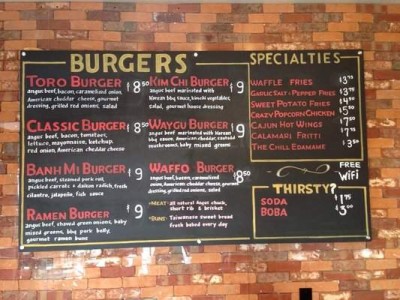 BURGERS
TORO BURGER $8.50
angus beef, bacon, caramelized onion,
American cheddar cheese, gourmet
dressing, grilled red onions, salad
CLASSIC BURGER $8
angus beef, bacon, tomatoes,
lettuce, mayonnaise, ketchup,
red onion, American cheddar cheese
BANH MI BURGER $9
angus beef, steamed pork
pickled carrots + daikon radish, fresh
cilantro, jalapeño, fish sauce
RAMEN BURGER $9
angus beef, green onions, baby
mixed greens, bbq pork belly,
gourmet ramen buns
KIM CHI BURGER $9
angus beef marinated with
Korean bbq sauce, kimchi vegetables,
salad, gourmet house dressing
WAYGU BURGER $9
angus beef marinated with Korean
bbq sauce, bacon, cheddar, sauteed
mushrooms, baby mixed greens
WAFFO BURGER $8.50
angus beef, bacon, caramelized
onion, American cheddar cheese, gourmet
dressing, grilled red onions, salad
*MEAT: all natural Angus chuck,
short rib & brisket
*BUNS: Taiwanese sweet bread
fresh baked every day
SPECIALTIES
WAFFLE FRIES $3.75
GARLIC SALT + PEPPER FRIES $3.75
SWEET POTATO FRIES $4.50
CRAZY POPCORN CHICKEN $5.50
CAJUN HOT WINGS $7.75
CALAMARI FRITTI
THE CHILL EDAMAME
FREE
WiFi
THIRSTY?
SODA $1.75
BOBA $3.00